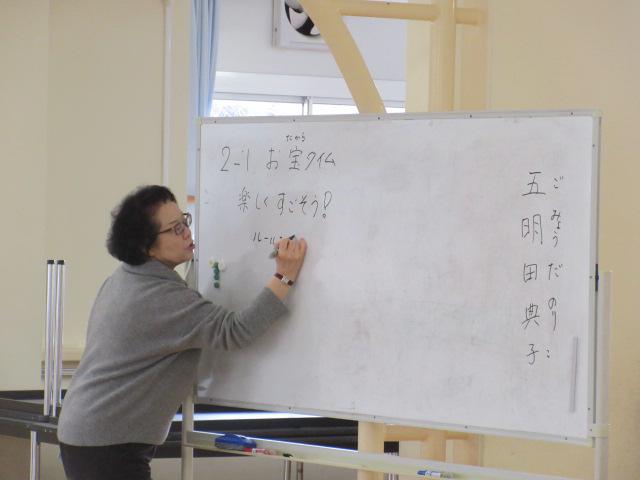 たから
2-1 お宝タイム
楽しくすごそう!
ルール
五明田典子
ごみょうだのりこ